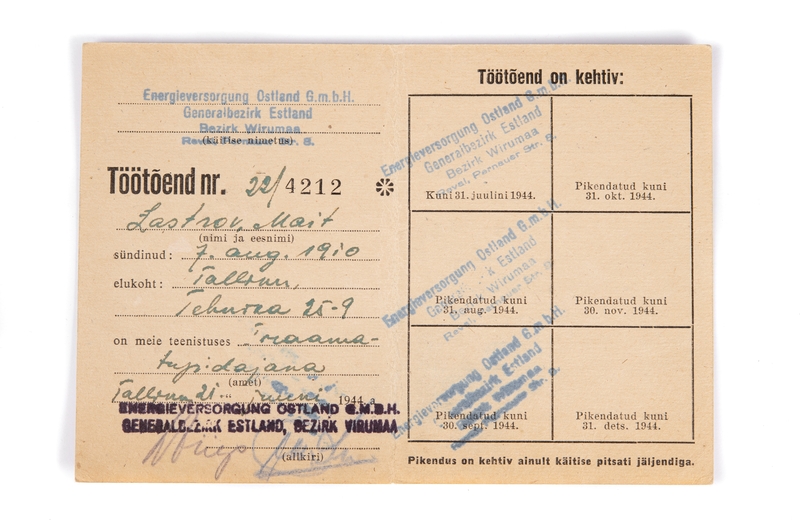 Energieversorgung Ostland G.m.b.H.
Generalbezirk Estland
Bezirk Wirumaa
Reval, Pernauer Str. 8.
(käitise nimetus)
Töötõend nr. 22/4212
Lastrov, Mait
(nimi ja eesnimi)
sündinud: 7. aug. 1910
elukoht: Tallinn,
25-9
on meie teenistuses raama-
tupidajana
(amet)
Tallinn 21. juuni 1944 a.
ENERGIEVERSORGUNG OSTLAND G.M.B.H.
GENERALBEZIRK ESTLAND, BEZIRK VIRUMAA
(allkiri)
Töötõend on kehtiv:
Energieversorgung Ostland G.m.b.H.
Generalbezirk Estland
Bezirk Wirumaa
Reval, Pernauer Str. 8.
Kuni 31. juulini 1944.
Pikendatud kuni
31. okt. 1944.
Energieversorgung Ostland G.m.b.H.
Generalbezirk Estland
Bezirk Wirumaa
Reval, Pernauer Str. 8.
Pikendatud kuni
31. aug. 1944.
Pikendatud kuni
30. nov. 1944.
Energieversorgung Ostland G.m.b.H.
Generalbezirk Estland
Bezirk Wirumaa
Pikendatud kuni
30. sept. 1944.
Pikendatud kuni
31. dets. 1944.
Pikendus on kehtiv ainult käitise pitsati jäljendiga.